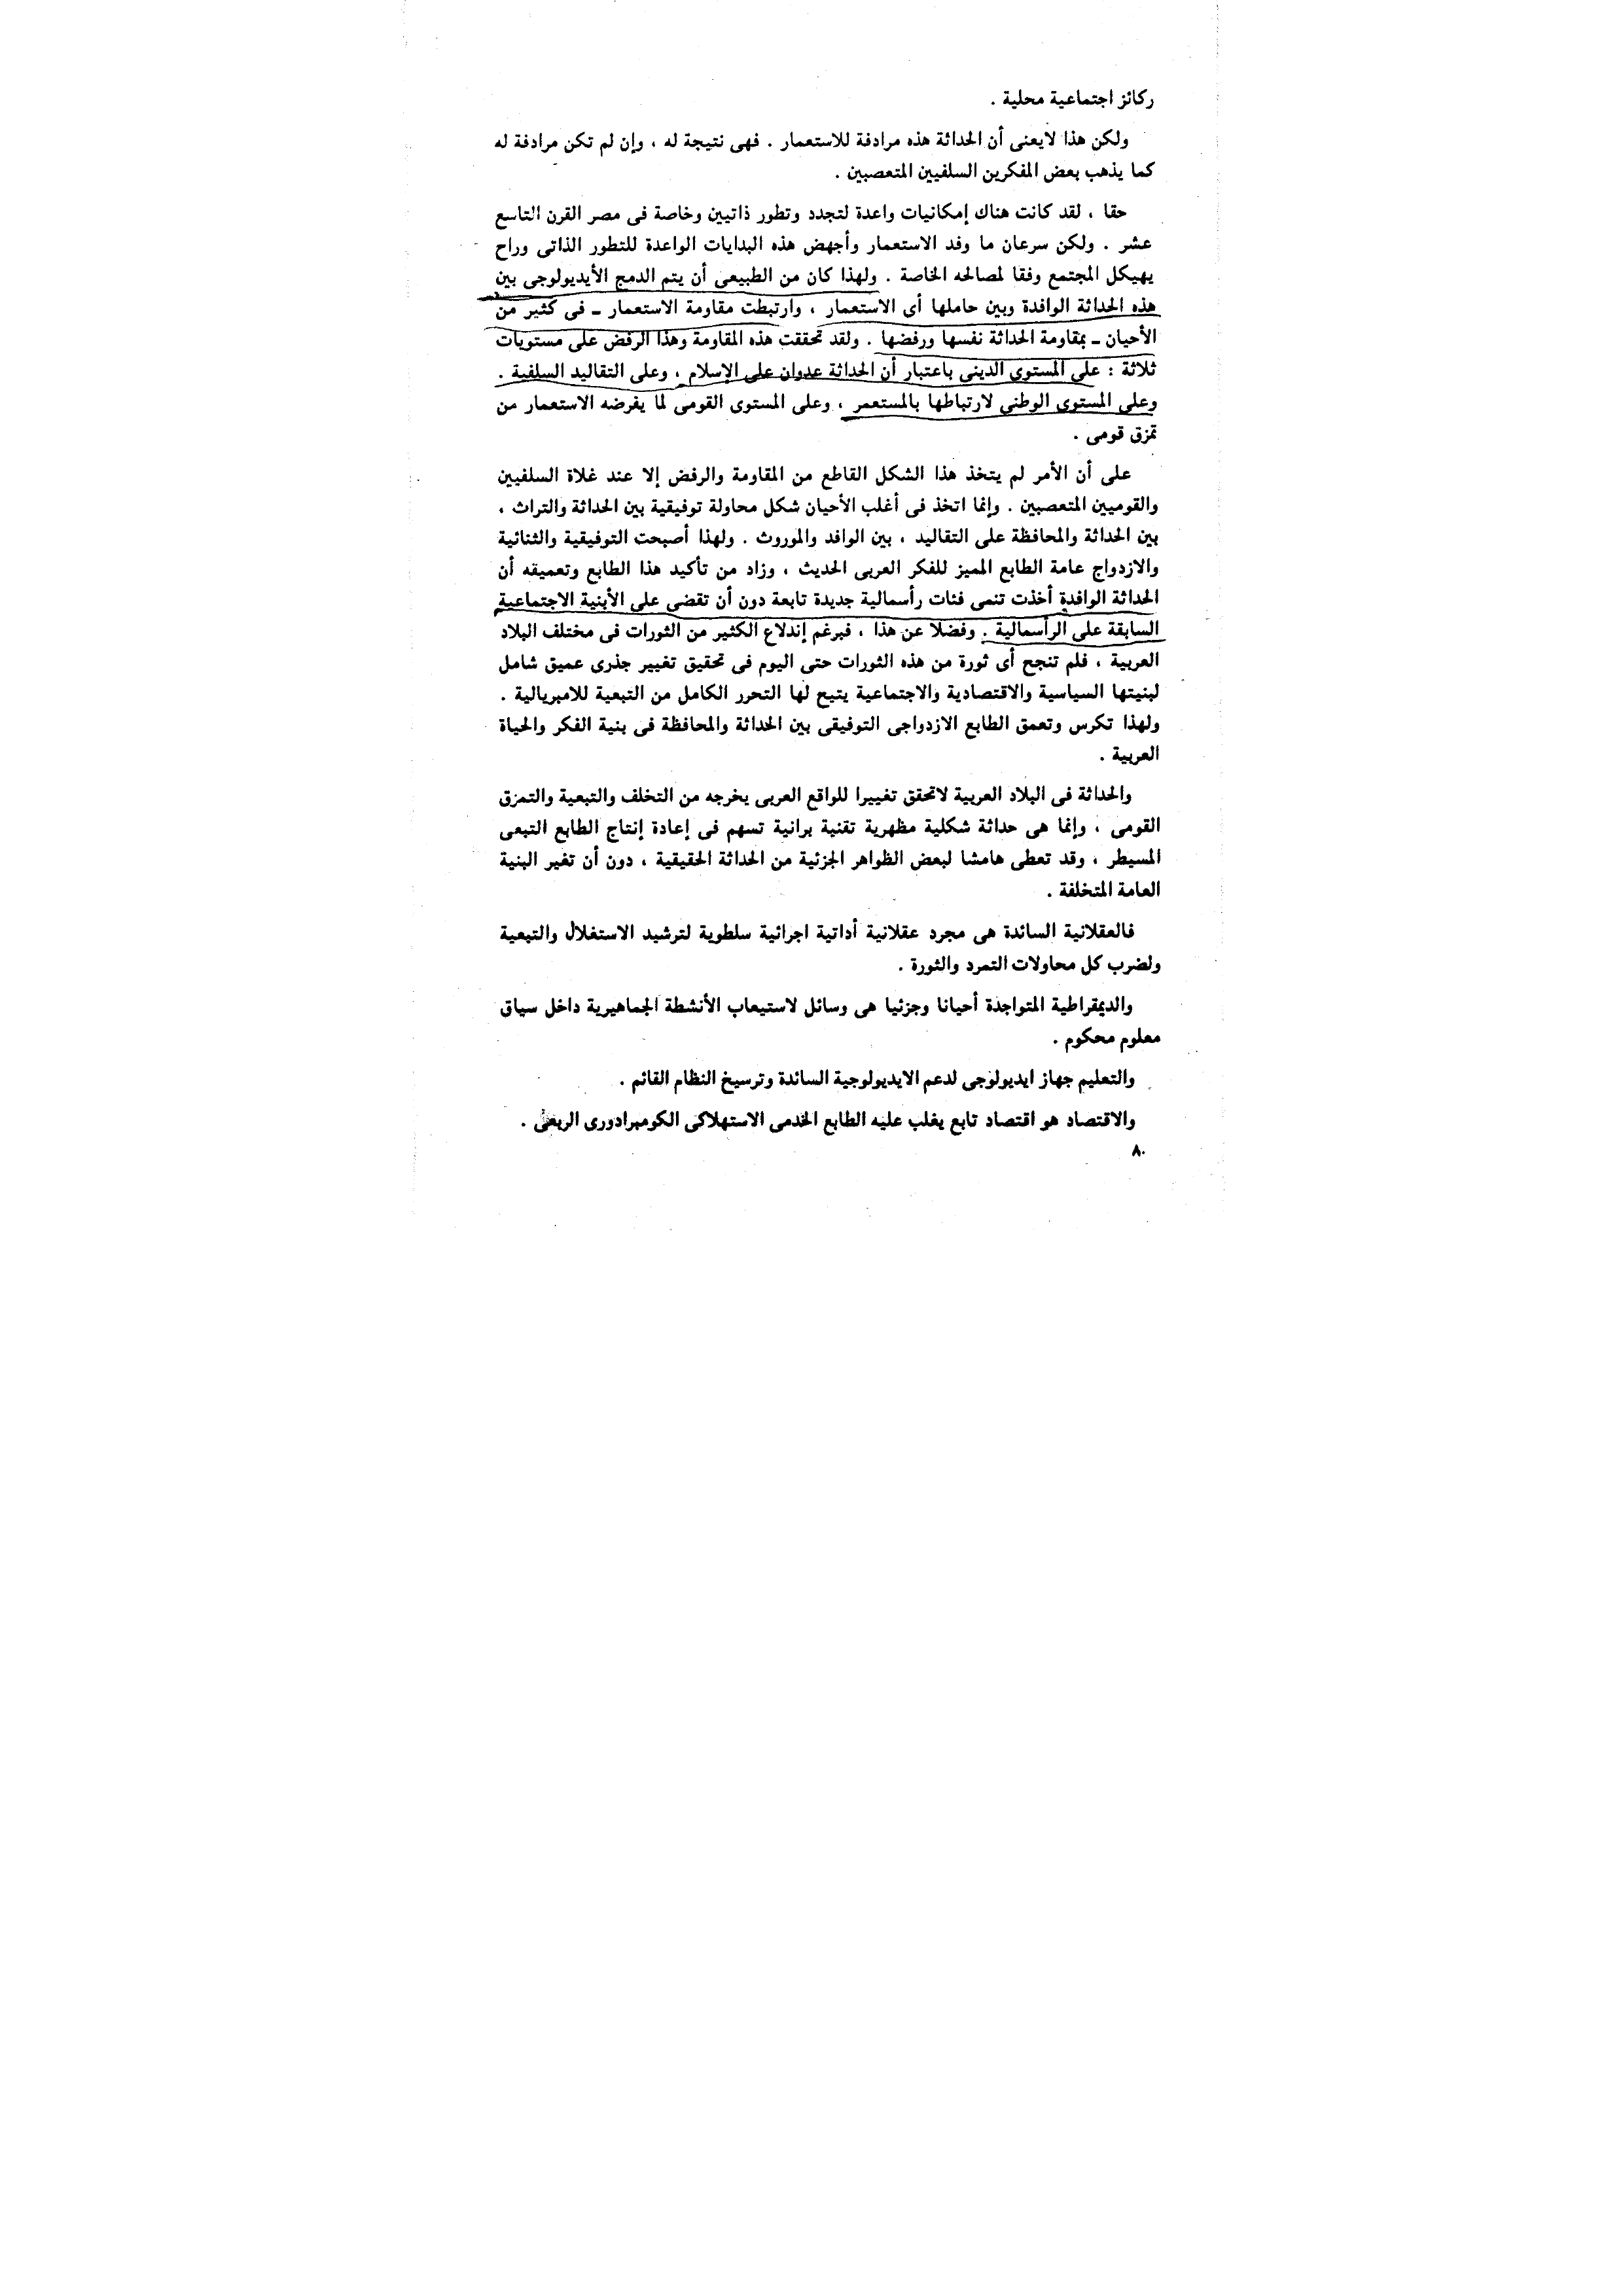 ركائز اجتماعية محلية .
ولكن هذا لايعنى أن الحداثة هذه مرادفة للاستعمار . فهى نتيجة له ، وإن لم تكن مرادفة له
كما يذهب بعض المفكرين السلفيين المتعصبين .
حقا ، لقد كانت هناك إمكانيات واعدة لتجدد وتطور ذاتيين وخاصة فى مصر القرن التاسع
عشر . ولكن سرعان ما وفد الاستعمار وأجهض هذه البدايات الواعدة للتطور الذاتى وراح
يهيكل المجتمع وفقا لمصالحه الخاصة . ولهذا كان من الطبيعى أن يتم الدمج الأيديولوجى بين
هذه الحداثة الوافدة وبين حاملها أى الاستعمار ، وارتبطت مقاومة الاستعمار ـ فى كثير من
الأحيان ـ بمقاومة الحداثة نفسها ورفضها . ولقد تحققت هذه المقاومة وهذا الرفض على مستويات
ثلاثة : على المستوى الدينى باعتبار أن الحداثة عدوان على الإسلام ، وعلى التقاليد السلفية .
وعلى المستوى الوطنى لارتباطها بالمستعمر ، وعلى المستوى القومى لما يفرضه الاستعمار من
تمزق قومى .
على أن الأمر لم يتخذ هذا الشكل القاطع من المقاومة والرفض إلا عند غلاة السلفيين
والقوميين المتعصبين . وإنما اتخذ فى أغلب الأحيان شكل محاولة توفيقية بين الحداثة والتراث ،
بين الحداثة والمحافظة على التقاليد ، بين الوافد والموروث . ولهذا أصبحت التوفيقية والثنائية
والازدواج عامة الطابع المميز للفكر العربى الحديث ، وزاد من تأكيد هذا الطابع وتعميقه أن
الحداثة الوافدة أخذت تنمى فئات رأسمالية جديدة تابعة دون أن تقضى على الأبنية الاجتماعية
السابقة على الرأسمالية . وفضلا عن هذا ، فبرغم إندلاع الكثير من الثورات فى مختلف البلاد
العربية ، فلم تنجح أى ثورة من هذه الثورات حتى اليوم فى تحقيق تغيير جذرى عميق شامل
لبنيتها السياسية والاقتصادية والاجتماعية يتيح لها التحرر الكامل من التبعية للامبريالية .
ولهذا تكرس وتعمق الطابع الازدواجى التوفيقى بين الحداثة والمحافظة فى بنية الفكر والحياة
العربية .
والحداثة فى البلاد العربية لاتحقق تغييرا للواقع العربى يخرجه من التخلف والتبعية والتمزق
القومى ، وإنما هى حداثة شكلية مظهرية تقنية برانية تسهم فى إعادة إنتاج الطابع التبعى
المسيطر ، وقد تعطى هامشا لبعض الظواهر الجزئية من الحداثة الحقيقية ، دون أن تغير البنية
العامة المتخلفة .
فالعقلانية السائدة هى مجرد عقلانية أداتية اجرائية سلطوية لترشيد الاستغلال والتبعية
ولضرب كل محاولات التمرد والثورة .
والديمقراطية المتواجدة أحيانا وجزئيا هى وسائل لاستيعاب الأنشطة الجماهيرية داخل سياق
معلوم محكوم .
والتعليم جهاز ايديولوجى لدعم الايديولوجية السائدة وترسيخ النظام القائم .
والاقتصاد هو اقتصاد تابع يغلب عليه الطابع الخدمى الاستهلاكى الكومبرادورى الريعى .
٨٠